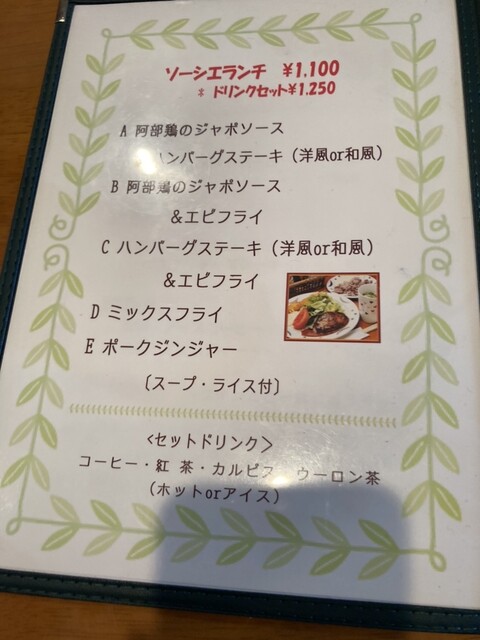 ソーシエランチ ¥1,100
* ドリンクセット¥1,250
A 阿部鶏のジャポソース
ハンバーグステーキ (洋風or和風)
B 阿部鶏のジャポソース
&エビフライ
C ハンバーグステーキ (洋風or和風)
&エビフライ
D ミックスフライ
E ポークジンジャー
〔スープ・ライス付〕
<セットドリンク>
コーヒー・紅 茶・カルピス ウーロン茶
(ホットorアイス)